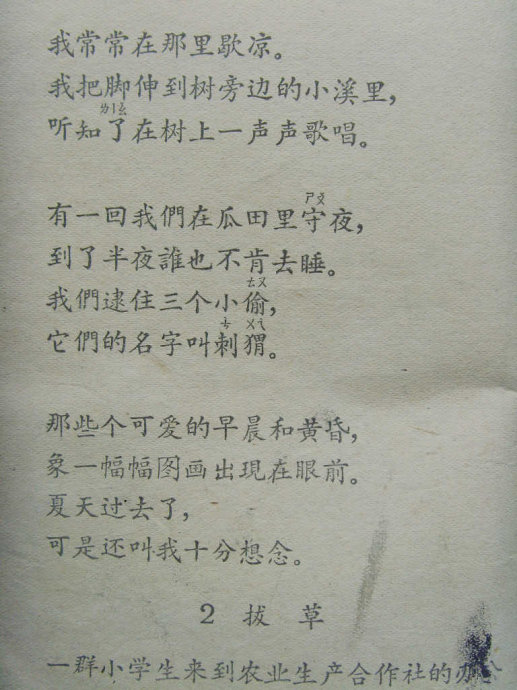 我常常在那里歇凉。
我把脚伸到树旁边的小溪里，
ㄌㄧㄠ
听知了在树上一声声歌唱。
ㄕㄡ
有一回我們在瓜田里守夜，
到了半夜誰也不肯去睡。
ㄊㄡ
我們逮住三个小偷，
ㄘ ㄨㄟ
它們的名字叫刺猬。
那些个可爱的早晨和黄昏，
象一幅幅图画出現在眼前。
夏天过去了，
可是还叫我十分想念。
2 拔 草
一群小学生来到农业生产合作社的办公